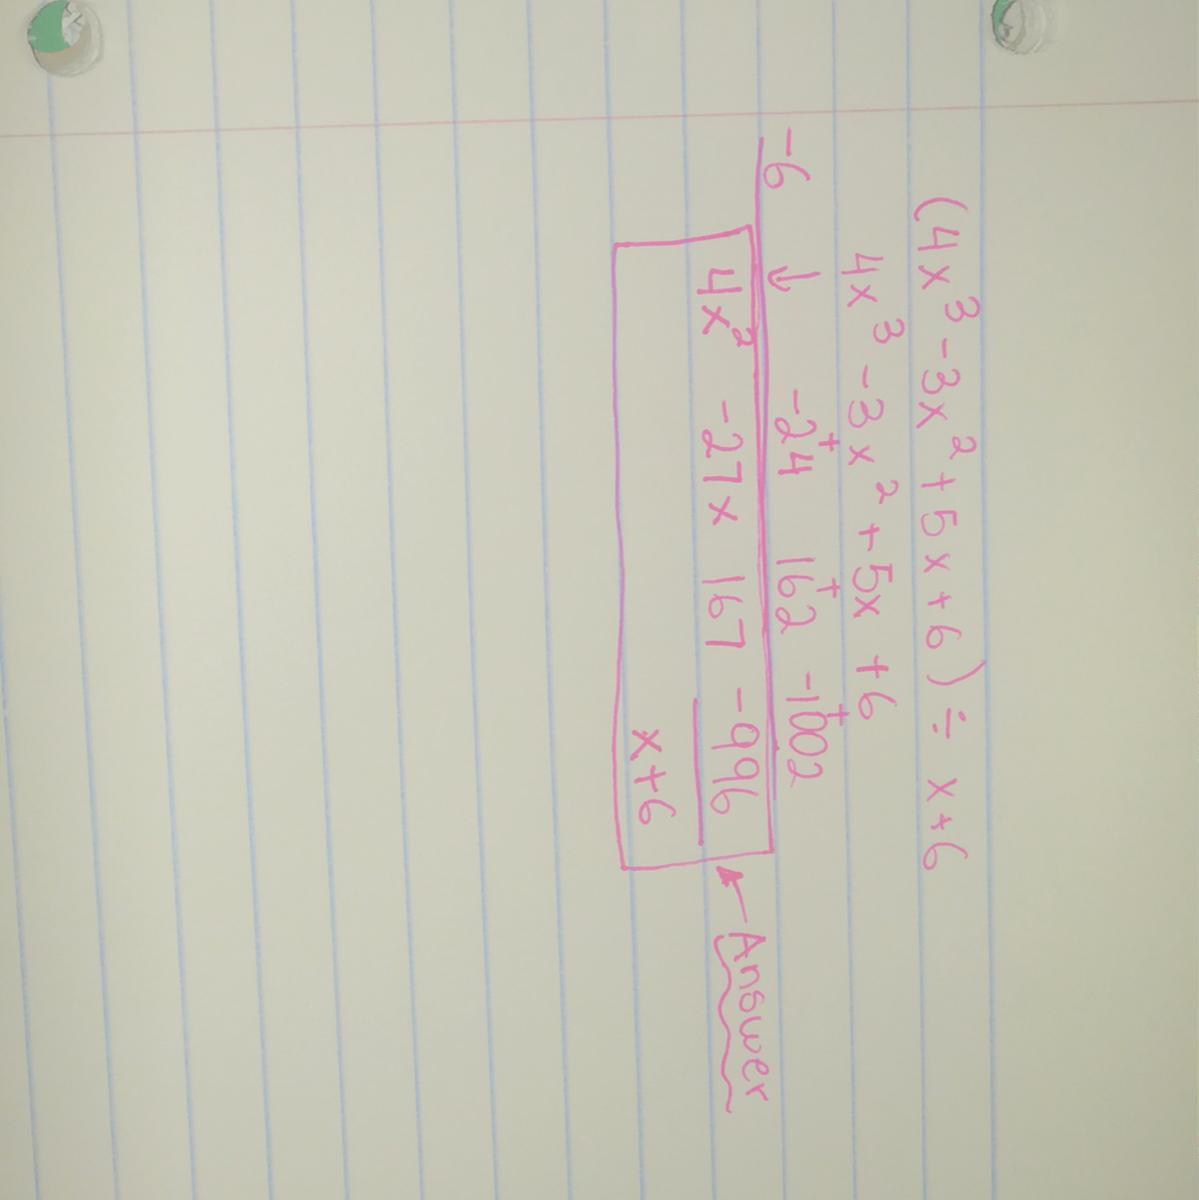 (4x³-3x²+5x+6) ÷ x+6
4x³ -3x² +5x +6
-6 ↓ -24 162 -1002
4x² -27x 167 -996 ← Answer
x+6